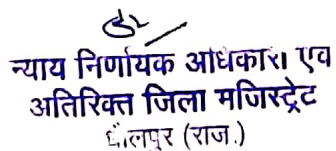 न्याय निर्णायक अधिकारी एवं
अतिरिक्त जिला मजिस्ट्रेट
धौलपुर (राज.)